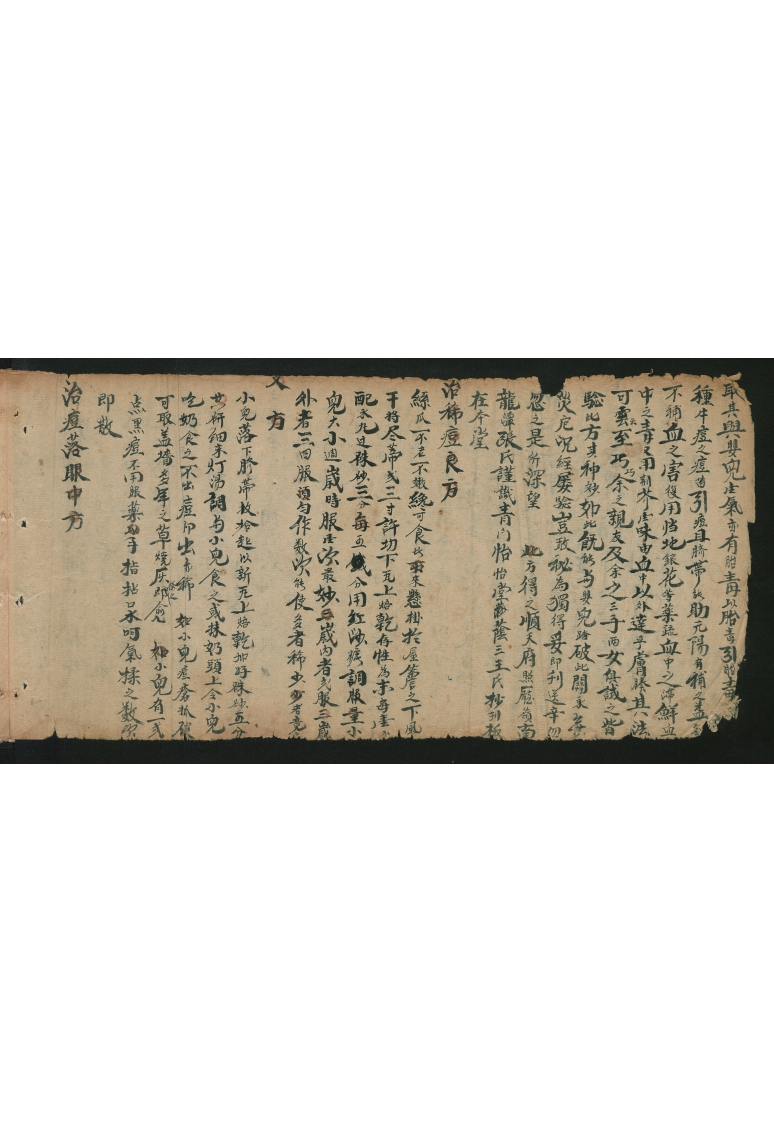 取其與嬰兒生氣亦有胎毒以胎毒引胎毒
種牛痘之痘苗引痘且臍帶能助元陽有補之益
不補血之害復用歸地銀花等藥疏血中之滯鮮血
中之毒又用荊芥生味由血中以外達乎膚腠其法
可云至巧余之親友及余之三子兩女無試之皆
驗此方其神妙如此既能與嬰兒破此關
災厄況經屢驗豈敢秘為獨得妥即刊送幸勿
忽之是所深望 此方得之順天府照廳
龍潭張氏謹識青門怡怡堂蔭三王氏抄刊板
在本堂
治稀痘良方
絲瓜不老不嫩絕可食的取來懸掛於屋簷之下風
干將尽蒂或三寸許切下瓦上焙乾存性為末每
配水九過硃砂三分每五分用紅沙糖調服量小
兒大小週歲時服生次最妙三歲內者或服三歲
外者三四服須勻作数次能使多者稀少少者竟
又方
小兒落下臍帶放地起以新瓦上焙乾加好硃砂五分
共研細末灯湯調与小兒食之或抹奶頭上令小兒
吃奶食之不出痘即出亦稀 如小兒痘瘡抓破
可取盖墻多年之草燒灰即愈 如小兒有一或
点黑痘不用服藥手指拈呆呵氣揉之数次
即散
治痘落眼中方